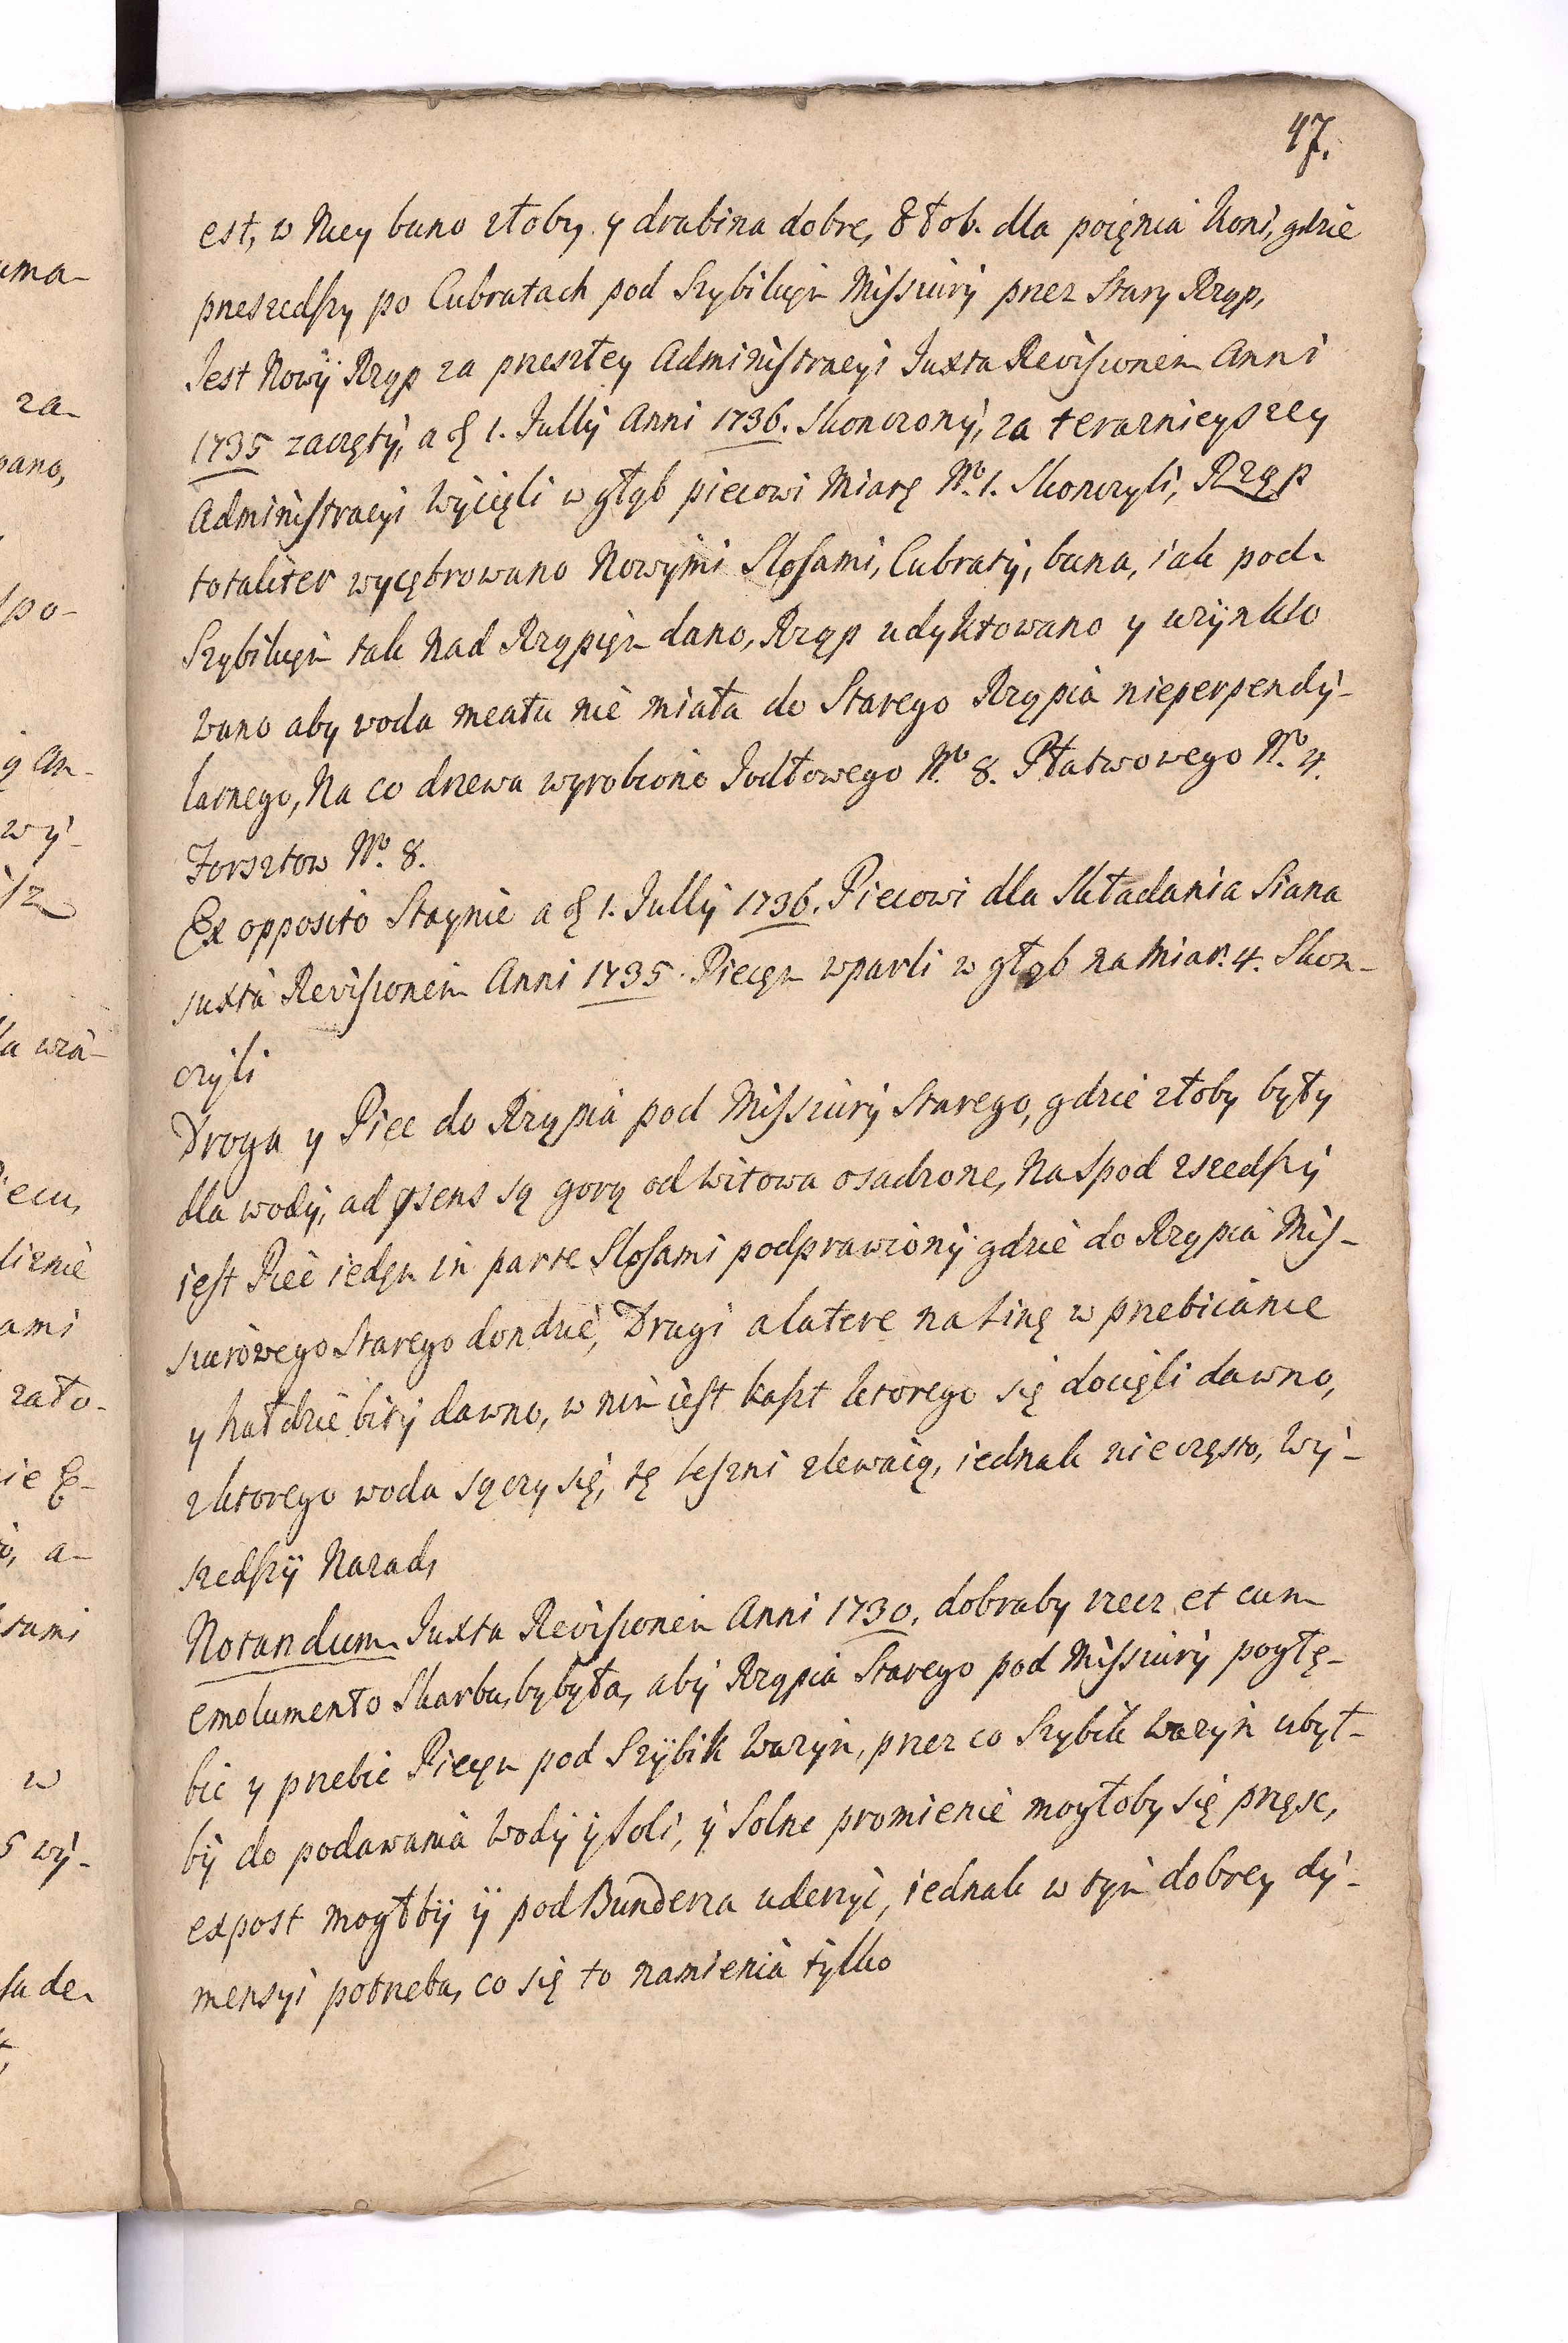 47.
est, w Niey bano złoby y drabina dobre, 8 złob. dla poięnia Koni, gdzie
przeszedszy po Cubratach pod Szybikięm Missiury przez Stary Rząp,
Jest Nowÿ Rząp za przeszłey Administracyi Juxta Revisionem Anni
1735 zaczęty, a 1. Jullij Anni 1736. Skonczony, za terazńieyszey
Administracyi Wycięli w głąb piecowi Miarę No. 1. Skonczyli, Rząp
totaliter wycębrowano Nowymi Slosami, Cubraty, bana, iak pod
Szybikięm tak Nad Rząpięm dano, Rząp udyktowano y wzynklo
wano aby woda meatu nie miała do Starego Rząpia nieperpendy-
larnego, Na co drzewa wyrobiono Jodłowego No. 8. Płatwowego No. 4.
Forsztow No. 8.
Ex opposito Staynie a 1. Jullij 1736. Piecowi dla Składania Siana
juxta Revisionem Anni 1735. Piecęm wparli w głąb na Miar. 4. Skon-
czyli
Droga y Piec do Rząpia pod Missiury Starego, gdzie złoby były
dla wody, ad psens są gorą od Witowa osadzone, Na spod zszedszy
iest Piec iedęn in parte Slosami podprawiony gdzie do Rząpia Mis-
siurowego Starego dondzie, Drugi a latere na linę w przebicianie
y hałdzie bity dawno, w nim iest kaszt ktorego się docięli dawno,
z ktorego woda sączy się, tę leszni zlewaią, iednak nieczęsto, Wy-
szedszÿ Nazad,
Notandum Juxta Revisionem Anni 1730. dobraby rzecz et cum
emolumento Skarbu, bybyła, aby Rząpia Starego pod Missiury pogłę-
bic y przebic Piecęm pod Szÿbik Wazyn, przez co Szybik Wazyn ubył-
by do podawania Wody ÿ Soli, ÿ Solne promienie mogłoby się prząsc,
expost mogłbÿ ÿ pod Bunderza uderzyc, iednak w tym dobrey dy-
mensyi potrzeba, co się to namienia tylko